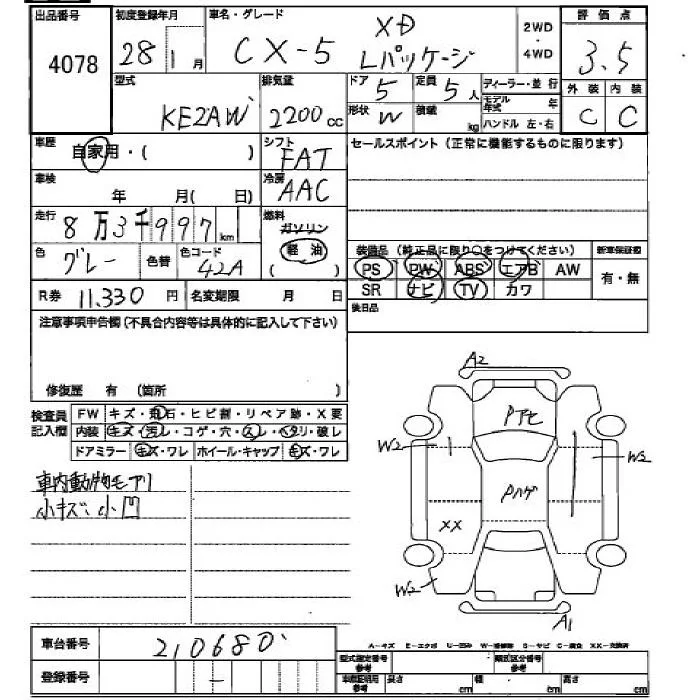 出品番号 初度登録年月 車名・グレード 2WD・4WD 評価点
4078 28 月 CX-5 XD Lパッケージ 3.5
型式 排気量 ドア 定員 ディーラー・並行 外装 内装
KE2AW 2200cc 5 5人 モデル年式 年 C C
形状 W 積載 kg ハンドル 左・右
車歴 自家用・( ) シフト FAT セールスポイント (正常に機能するものに限ります)
車検 年 月( 日) 冷房 AAC
走行 8万3千997km 燃料 ガソリン 軽油 ( )
色 グレー 色替 色コード 42A 装備品 (純正品に限り○をつけてください) 新車保証書
PS PW ABS エアB AW 有・無
R券 11.330円 名変期限 月 日 SR ナビ TV カワ
注意事項申告欄 (不具合内容等は具体的に記入して下さい) 後日品
修復歴 有 (箇所 )
検査員記入欄 FW キズ・飛石・ヒビ割・リペア跡・X要
内装 キズ・汚レ・コゲ・穴・スレ・ヘタリ・破レ
ドアミラー キズ・ワレ ホイール・キャップ キズ・ワレ
車内動物モアリ
小キズ、小凹
A2
Pアヒ
W2 W2
Pハゲ
XX
W2
A1
車台番号 210680
登録番号 -
A-キズ E-エクボ U-凹ミ W-補修跡 S-サビ C-腐食 XX-交換済
型式指定番号 参考 類別区分番号 参考
車庫証明用 参考 長さ cm 幅 cm 高さ cm